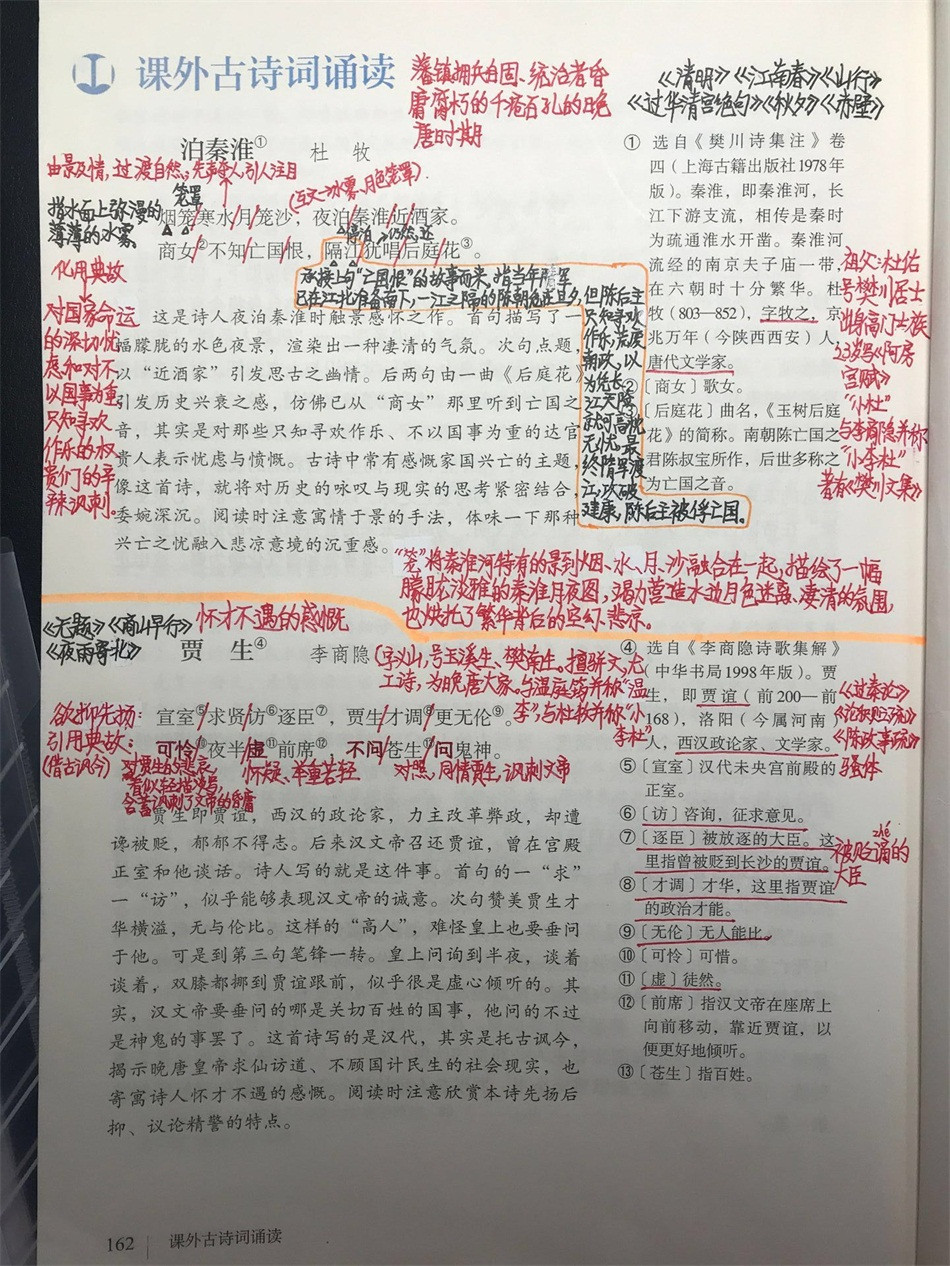 课外古诗词诵读
藩镇拥兵自固、统治者昏
庸腐朽的千疮百孔的晚
唐时期
《清明》《江南春》《山行》
《过华清宫绝句》《秋夕》《赤壁》
泊秦淮①
杜 牧
由景及情,过渡自然,先声夺人,引人注目
笼罩
(互文—冰雾、月色笼罩)
指水面上弥漫的
薄薄的冰雾
烟笼寒水月笼沙,夜泊秦淮近酒家。
停泊
仍然,还
商女②不知亡国恨,隔江犹唱后庭花③。
化用典故
对国家命运
的深切忧
虑和对不
以国事为重
只知寻欢
作乐的权
贵们的辛
辣讽刺。
承接上句“亡国恨”的故事而来,指当年隋军
已在江北准备南下,一江之隔的陈朝危在旦夕,但陈后主
只知寻欢
作乐,荒废
朝政,以
为凭长
江天险
就可高枕
无忧。最
终隋军渡
江,攻破
建康,陈后主被俘亡国。
这是诗人夜泊秦淮时触景感怀之作。首句描写了一
幅朦胧的水色夜景,渲染出一种凄清的气氛。次句点题,
以“近酒家”引发思古之幽情。后两句由一曲《后庭花》
引发历史兴衰之感,仿佛已从“商女”那里听到亡国之
音,其实是对那些只知寻欢作乐、不以国事为重的达官
贵人表示忧虑与愤慨。古诗中常有感慨家国兴亡的主题,
像这首诗,就将对历史的咏叹与现实的思考紧密结合,
委婉深沉。阅读时注意寓情于景的手法,体味一下那种
兴亡之忧融入悲凉意境的沉重感。
① 选自《樊川诗集注》卷
四(上海古籍出版社1978年
版)。秦淮,即秦淮河,长
江下游支流,相传是秦时
为疏通淮水开凿。秦淮河
流经的南京夫子庙一带,
在六朝时十分繁华。杜
牧(803—852),字牧之,京
兆万年(今陕西西安)人,
唐代文学家。
②〔商女〕歌女。
③〔后庭花〕曲名,《玉树后庭
花》的简称。南朝陈亡国之
君陈叔宝所作,后世多称之
为亡国之音。
祖父:杜佑
号樊川居士
出身高门士族
23岁写《阿房
宫赋》
“小杜”
与李商隐并称
“小李杜”
著有《樊川文集》
“笼”将秦淮河特有的景到烟、水、月、沙融合在一起,描绘了一幅
朦胧淡雅的秦淮月夜图,竭力营造水边月色迷离、凄清的氛围,
也烘托了繁华背后的空幻、悲凉。
《无题》《商山早行》
《夜雨寄北》
怀才不遇的感慨
贾 生④
李商隐
(字义山,号玉溪生、樊南生。擅骈文,尤
工诗,为晚唐大家。与温庭筠并称“温
李”,与杜牧并称“小
李杜”
欲抑先扬:
引用典故:
(借古讽今)
宣室⑤求贤访⑥逐臣⑦,贾生才调⑧更无伦⑨。
可怜⑩夜半虚⑪前席⑫,不问苍生⑬问鬼神。
对贾生的悲哀,
看似轻描淡写
含蓄讽刺了文帝的昏庸
怀疑、举重若轻
对照,同情贾生,讽刺文帝
贾生即贾谊,西汉的政论家,力主改革弊政,却遭
谗被贬,郁郁不得志。后来汉文帝召还贾谊,曾在宫殿
正室和他谈话。诗人写的就是这件事。首句的一“求”
一“访”,似乎能够表现汉文帝的诚意。次句赞美贾生才
华横溢,无与伦比。这样的“高人”,难怪皇上也要垂问
于他。可是到第三句笔锋一转。皇上问询到半夜,谈着
谈着,双膝都挪到贾谊跟前,似乎很是虚心倾听的。其
实,汉文帝要垂问的哪是关切百姓的国事,他问的不过
是神鬼的事罢了。这首诗写的是汉代,其实是托古讽今,
揭示晚唐皇帝求仙访道、不顾国计民生的社会现实,也
寄寓诗人怀才不遇的感慨。阅读时注意欣赏本诗先扬后
抑、议论精警的特点。
④ 选自《李商隐诗歌集解》
(中华书局1998年版)。贾
生,即贾谊(前200—前
168),洛阳(今属河南)
人,西汉政论家、文学家。
⑤〔宣室〕汉代未央宫前殿的
正室。
⑥〔访〕咨询,征求意见。
⑦〔逐臣〕被放逐的大臣。这
里指曾被贬到长沙的贾谊。
⑧〔才调〕才华,这里指贾谊
的政治才能。
⑨〔无伦〕无人能比。
⑩〔可怜〕可惜。
⑪〔虚〕徒然。
⑫〔前席〕指汉文帝在座席上
向前移动,靠近贾谊,以
便更好地倾听。
⑬〔苍生〕指百姓。
《过秦论》
《论积贮疏》
《陈政事疏》
骚体
zhé
被贬谪的
大臣
162
课外古诗词诵读